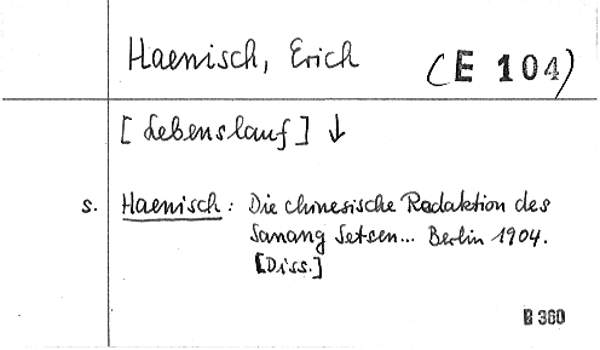 Haenisch, Erich (E 104)
[Lebenslauf] ↓
s. Haenisch: Die chinesische Redaktion des
Sanang Setsen... Berlin 1904.
[Diss.]
B 360